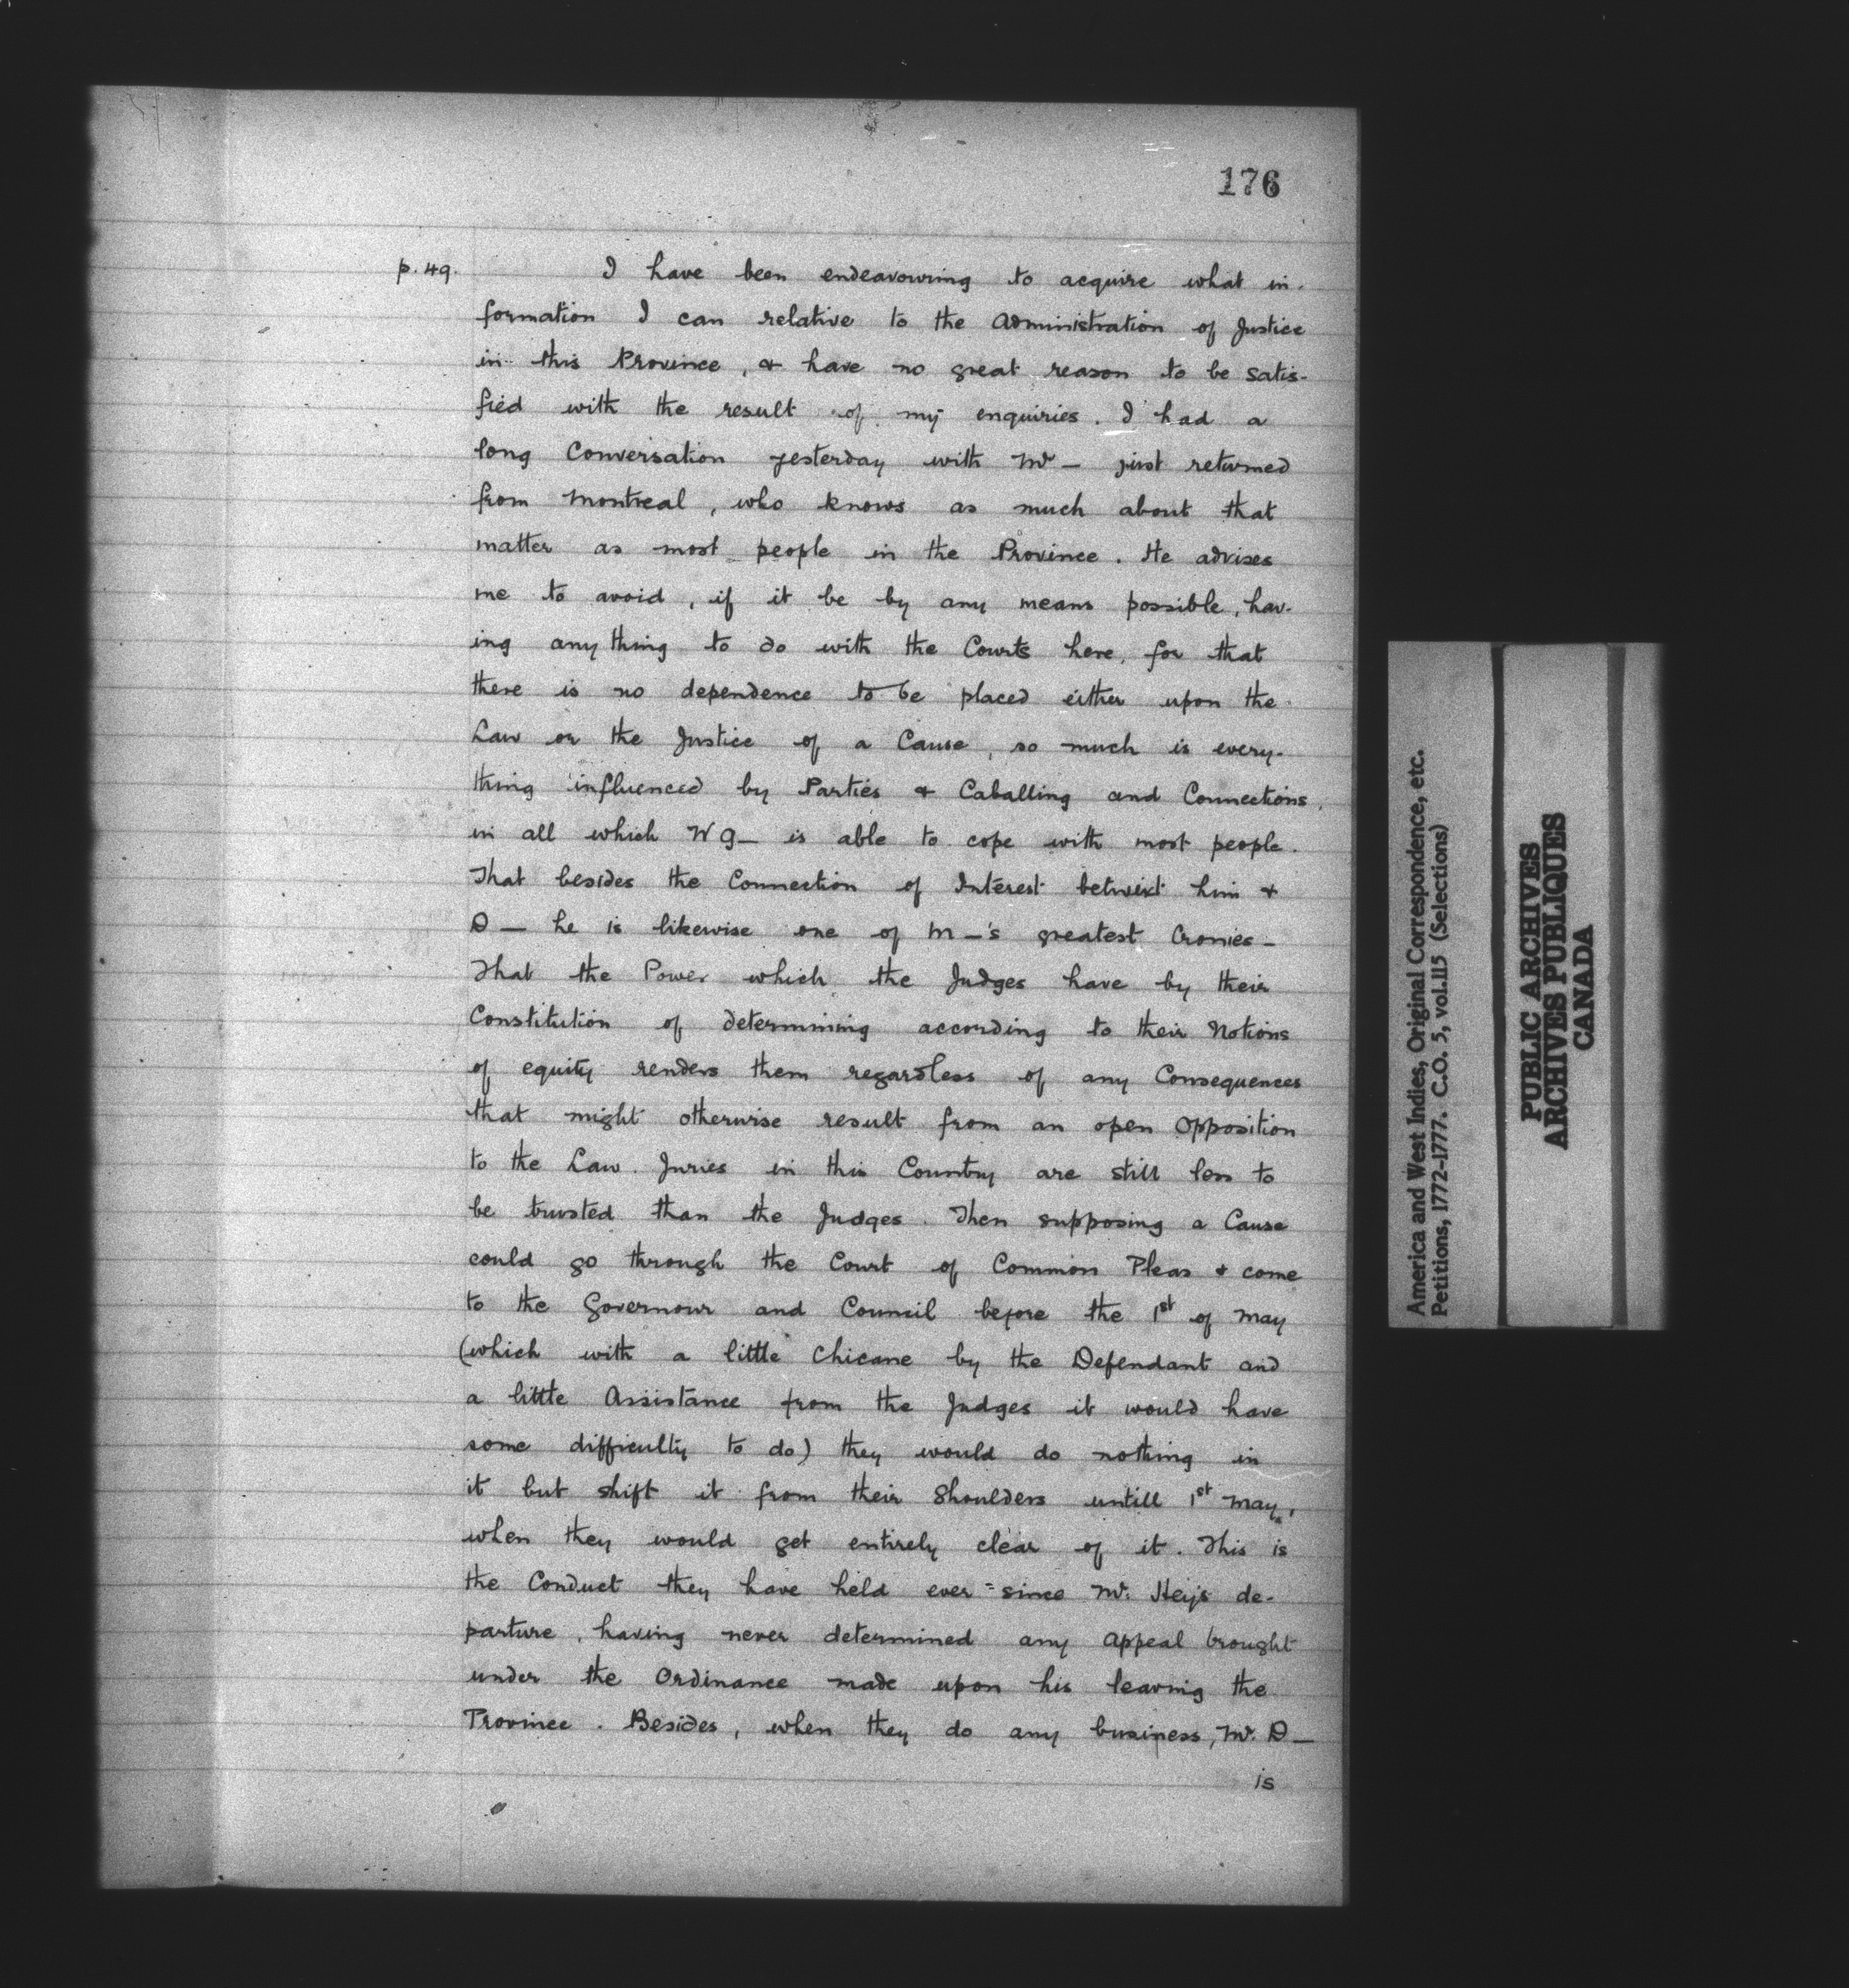 176
p. 49.
I have been endeavouring to acquire what in-
formation I can relative to the Administration of Justice
in this Province, & have no great reason to be satis-
fied with the result of my enquiries. I had a
long Conversation yesterday with Mr — just returned
from Montreal, who knows as much about that
matter as most people in the Province. He advises
me to avoid, if it be by any means possible, hav-
ing any thing to do with the Courts here, for that
there is no dependence to be placed either upon the
Law or the Justice of a Cause, so much is every-
thing influenced by Parties & Caballing and Connections,
in all which W G— is able to cope with most people.
That besides the Connection of Interest betwixt him &
D — he is likewise one of M —'s greatest Cronies —
That the Power which the Judges have by their
Constitution of determining according to their Notions
of equity renders them regardless of any Consequences
that might otherwise result from an open Opposition
to the Law. Juries in this Country are still less to
be trusted than the Judges. Then supposing a Cause
could go through the Court of Common Pleas & come
to the Governour and Council before the 1st of May
(which with a little Chicane by the Defendant and
a little Assistance from the Judges it would have
some difficulty to do) they would do nothing in
it but shift it from their Shoulders untill 1st May,
when they would get entirely clear of it. This is
the Conduct they have held ever=since Mr. Hey's de-
parture, having never determined any Appeal brought
under the Ordinance made upon his leaving the
Province. Besides, when they do any business, Mr. D —
is
America and West Indies, Original Correspondence, etc.
Petitions, 1772-1777. C.O. 5, vol.115 (Selections)
PUBLIC ARCHIVES
ARCHIVES PUBLIQUES
CANADA